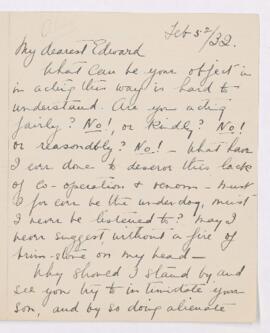 Feb 5th/32.
My dearest Edward
What can be your object in
in acting this way is hard to
understand. Are you acting
fairly? No!, or kindly? No!
or reasonably? No! - What have
I ever done to deserve this lack
of co-operation & venom - must
I for ever be the under dog, must
I never be listened to? May I
never suggest, without a fire of
brim-stone on my head -
Why should I stand by and
see you try to intimidate your
son, and by so doing alienate